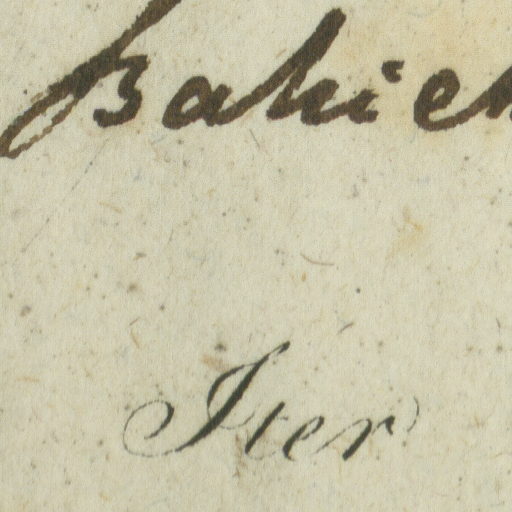 Bahien
Iter